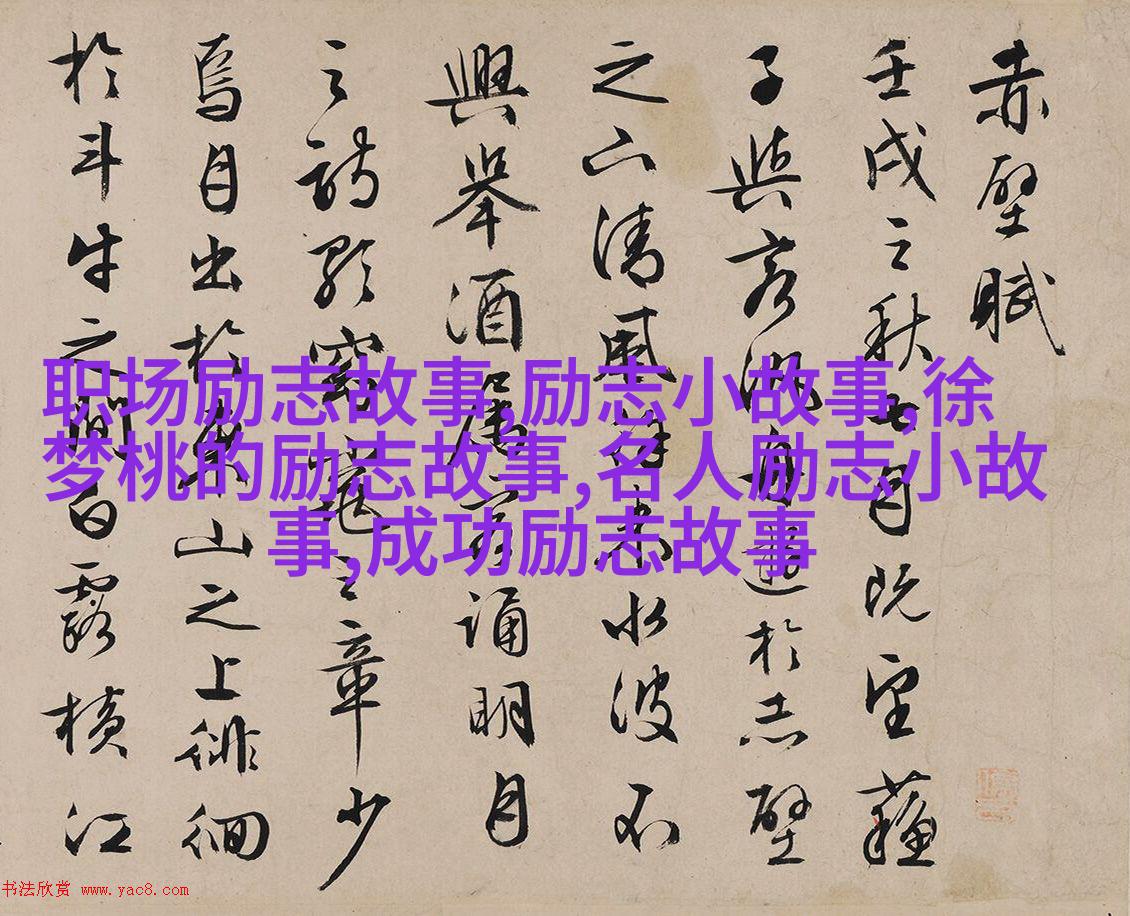 赤壁賦
壬戌之秋七月既望蘇
子與客泛舟遊於赤壁
之下清風徐來水波不
興舉酒屬客誦明月
之詩歌窈窕之章少
焉月出於東山之上徘徊
於斗牛之間白露橫江
职场励志故事,励志小故事,徐
梦桃的励志故事,名人励志小故
事,成功励志故事
书法欣赏 www.yac8.com